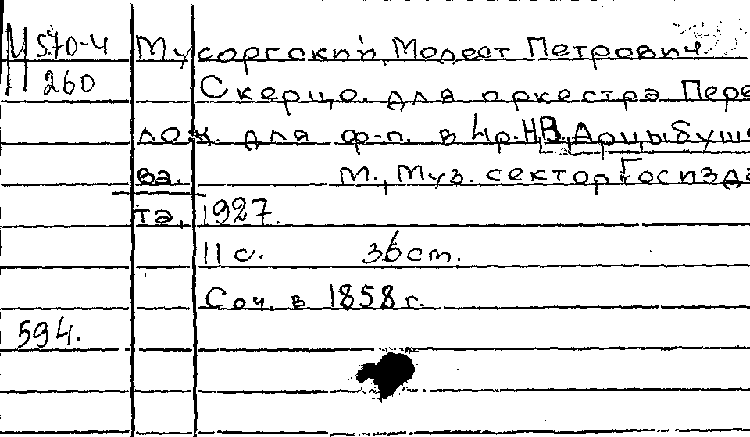 М 570-4 Мусоргский, Модест Петрович
260 Скерцо. для оркестра Пере
лож. для ф-п. в 4 р. Н.В. Арцыбуше
ва. М., Муз. сектор Госизда
та, 1927.
11 с. 36 cm.
Соч. в 1858 г.
594.